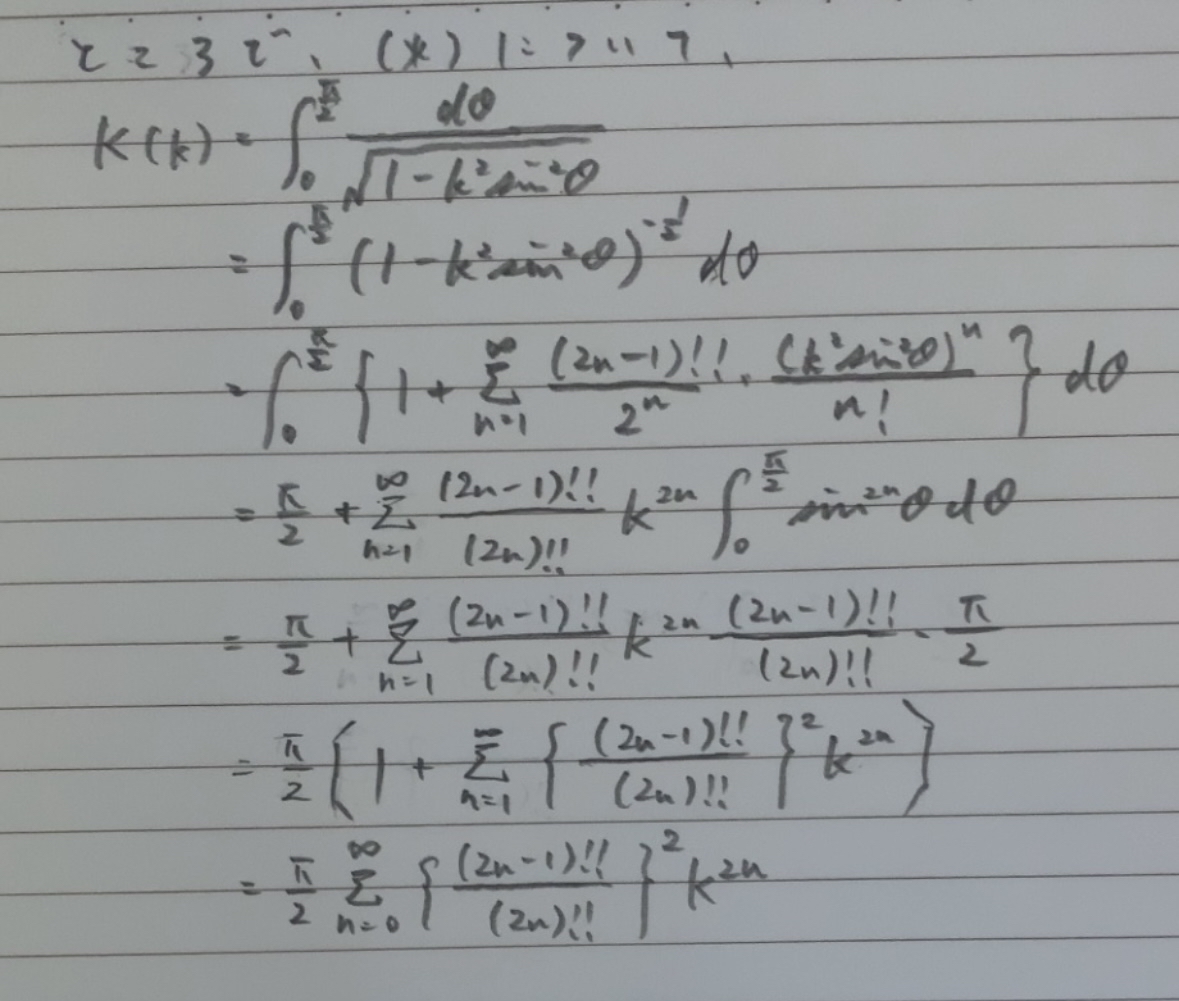 ところで、(*)について、
K(k) = ∫_0^{π/2} dθ / √(1-k²sin²θ)
= ∫_0^{π/2} (1-k²sin²θ)^{-1/2} dθ
= ∫_0^{π/2} { 1 + Σ_{n=1}^{∞} (2n-1)!!/2^n · (k²sin²θ)^n/n! } dθ
= π/2 + Σ_{n=1}^{∞} (2n-1)!!/(2n)!! k^{2n} ∫_0^{π/2} sin^{2n}θ dθ
= π/2 + Σ_{n=1}^{∞} (2n-1)!!/(2n)!! k^{2n} (2n-1)!!/(2n)!! · π/2
= π/2 ( 1 + Σ_{n=1}^{∞} { (2n-1)!!/(2n)!! }² k^{2n} )
= π/2 Σ_{n=0}^{∞} { (2n-1)!!/(2n)!! }² k^{2n}